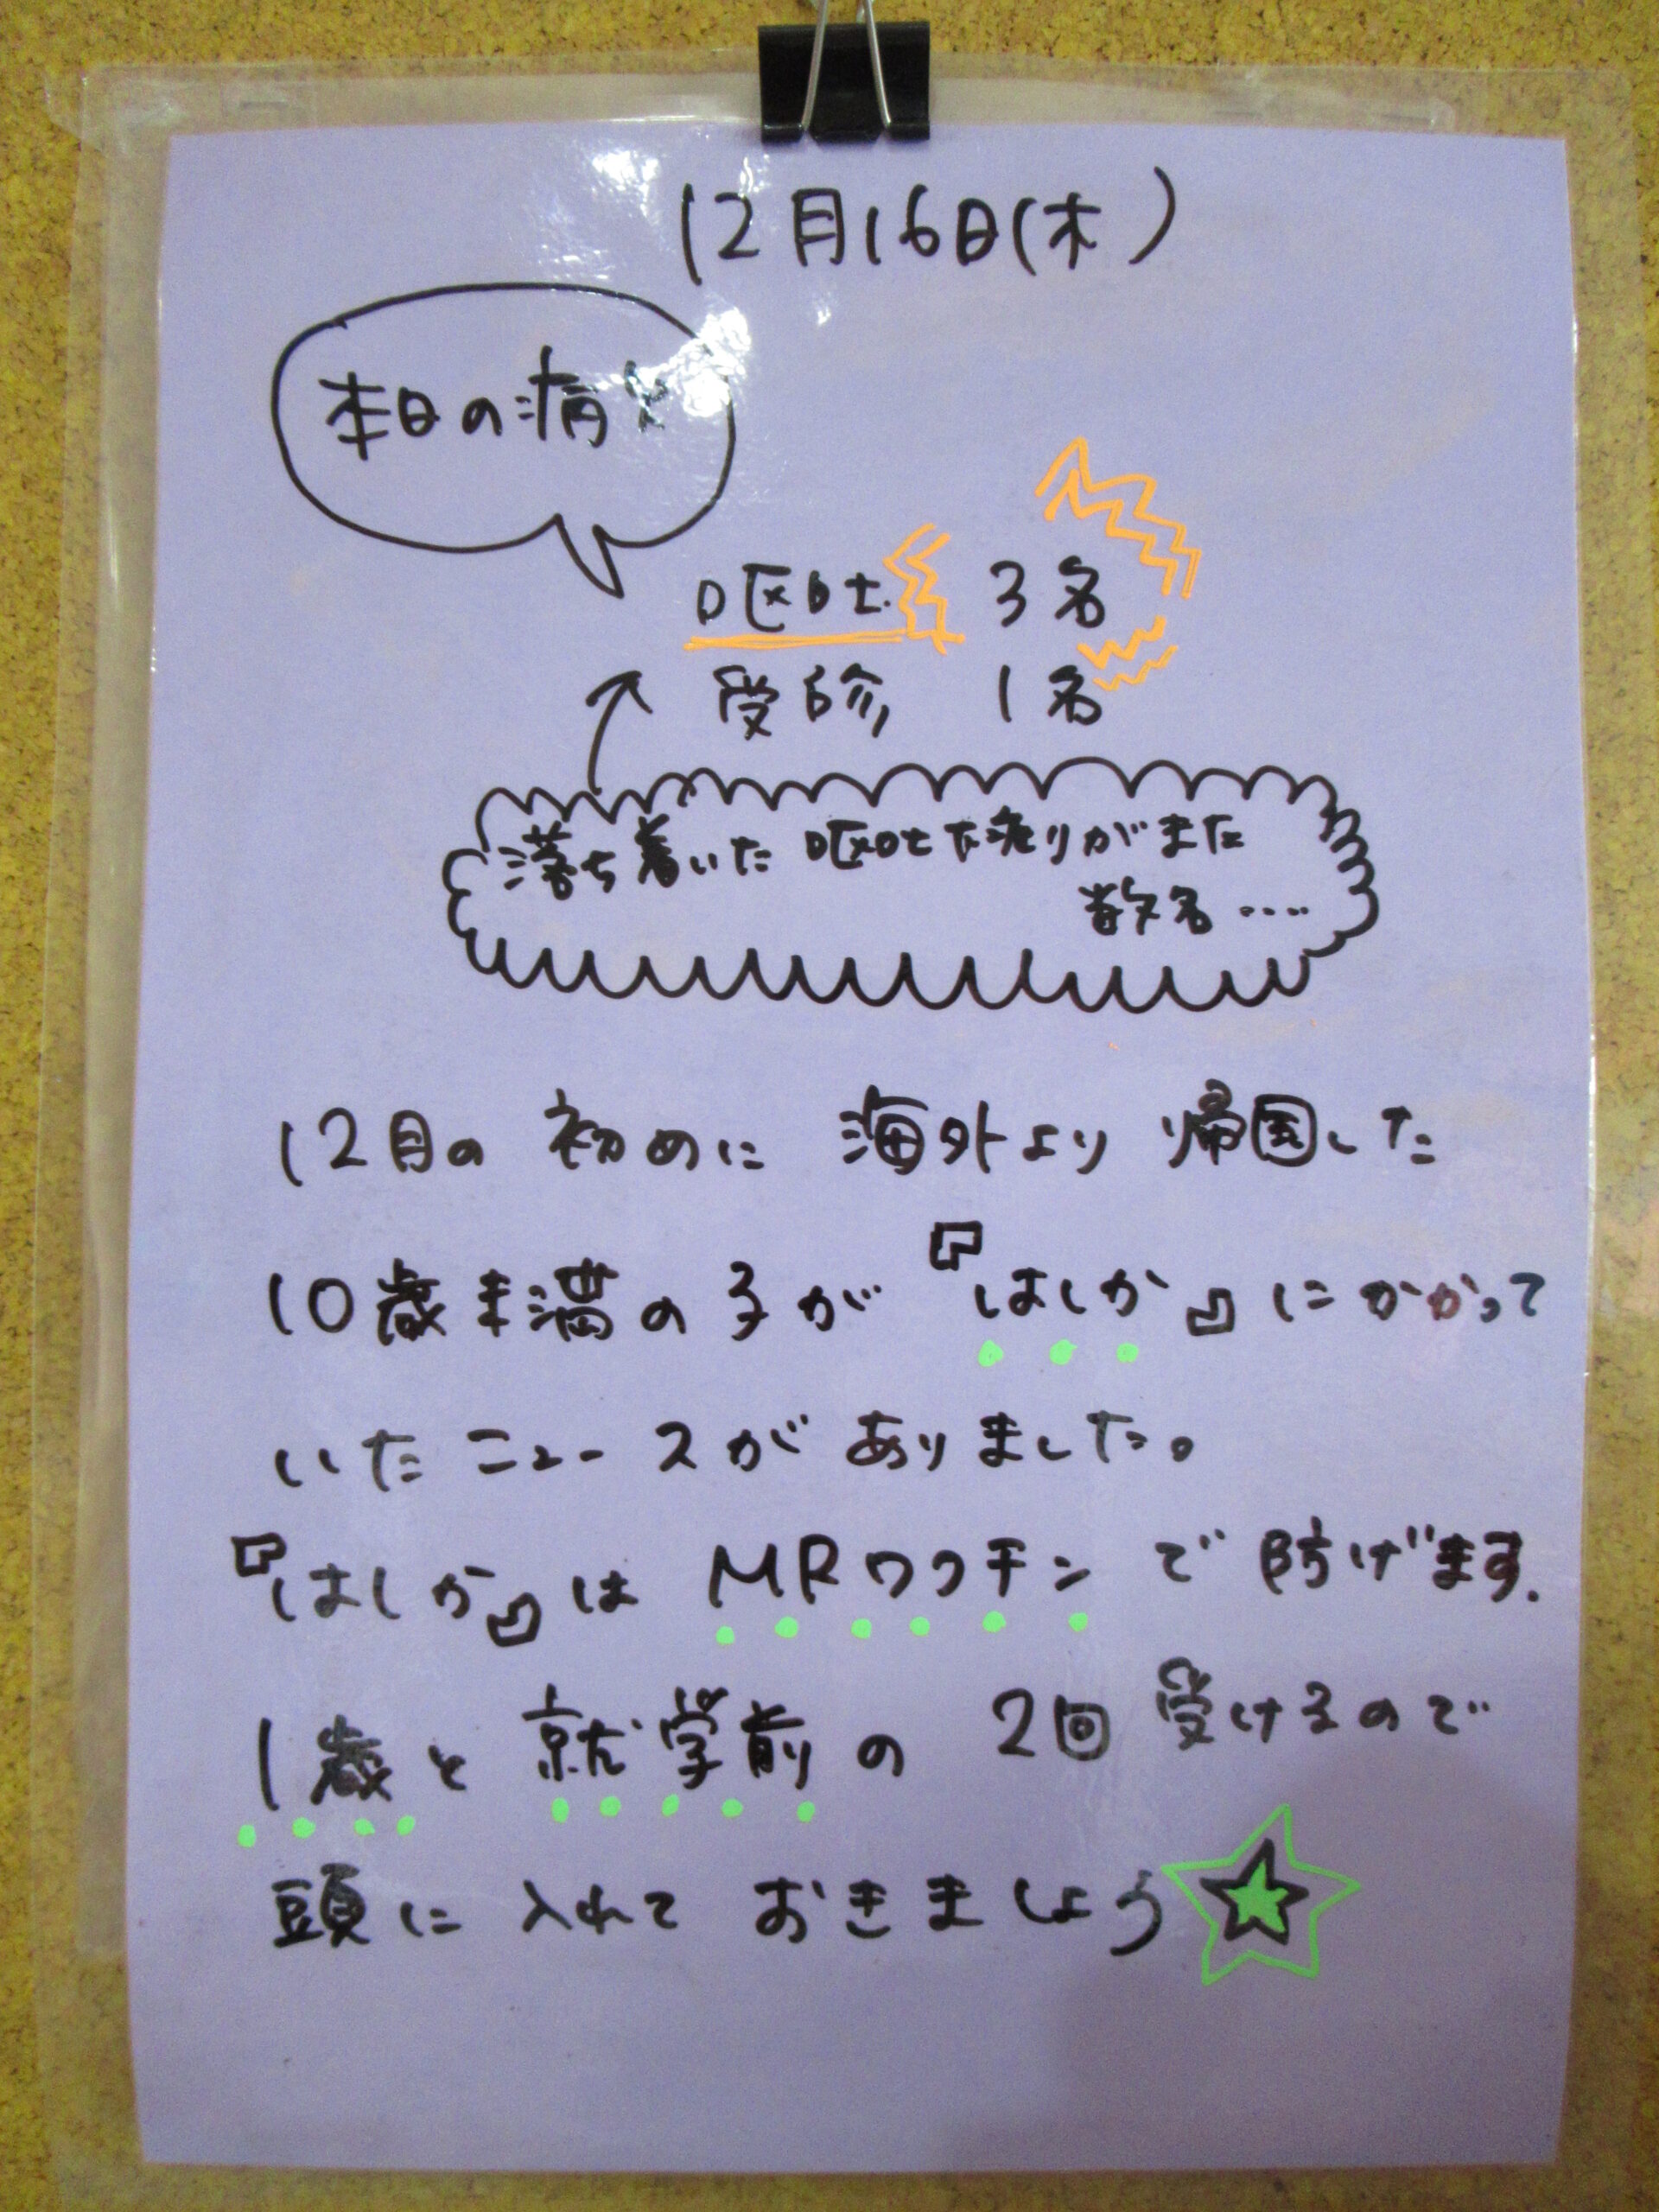 12月16日(木)
本日の病欠
嘔吐 3名
受診 1名
落ち着いた嘔吐下痢がまた
数名‥‥
12月の初めに海外より帰国した
10歳未満の子が『はしか』にかかって
いたニュースがありました。
『はしか』はMRワクチンで防げます.
1歳と就学前の2回受けるので
頭に入れておきましょう